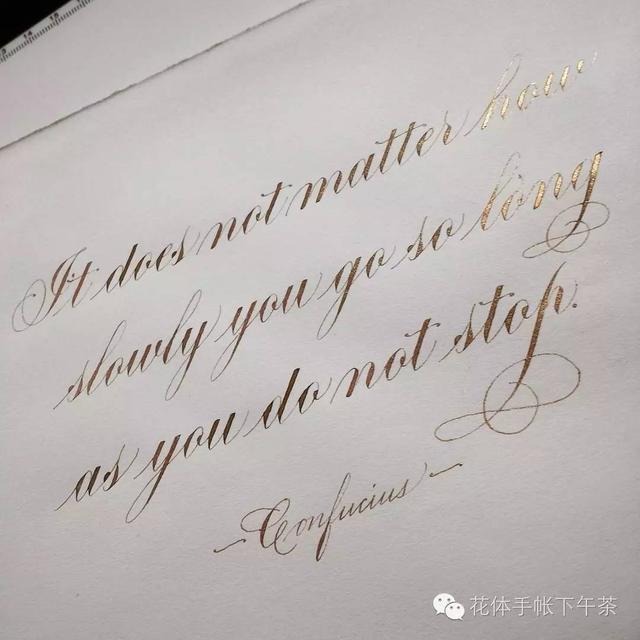 It does not matter how
slowly you go so long
as you do not stop.
-Confucius-
花体手帐下午茶